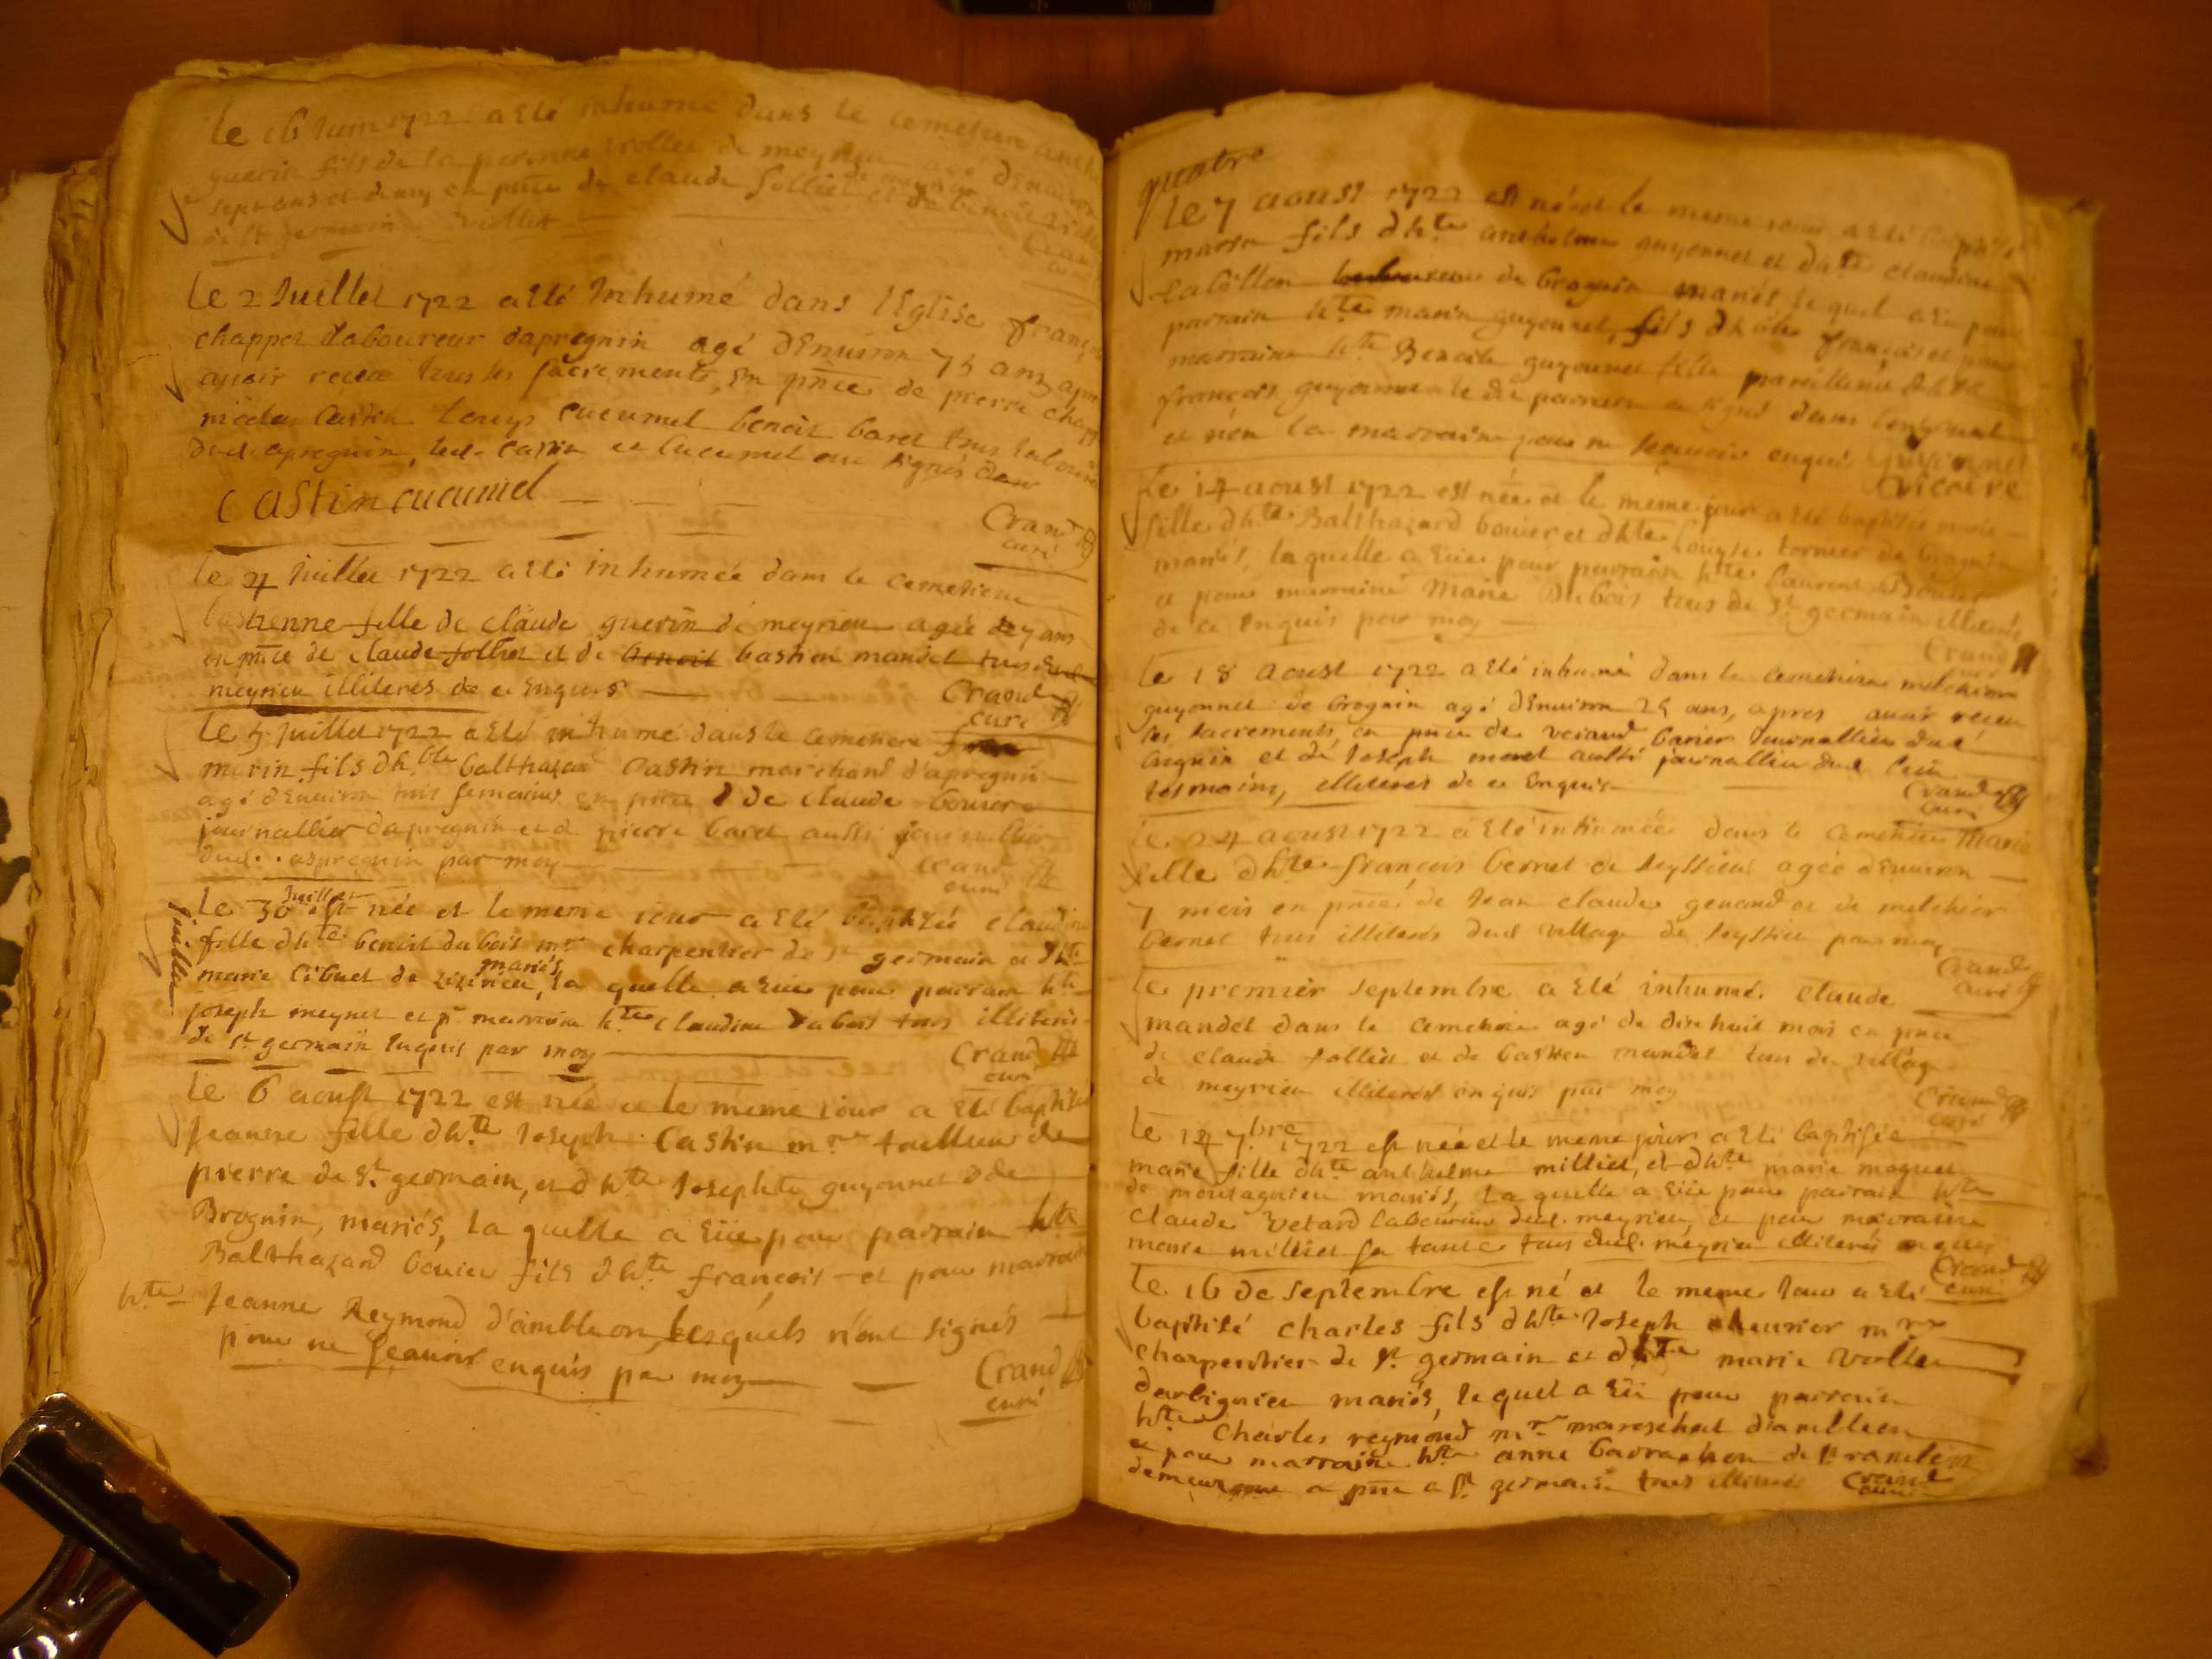 le 16 Juin 1722 a Eté inhumé dans le cemetiere
guerin fils de la agé d'Enuiron
sept ans et demy en pnce de claude follier et de
de st germain
Le 2 Juillet 1722 a Eté Inhumé dans l'Eglise françois
chappot laboureur dapregnin agé d'Enuiron 75 ans apres
auoir receu tous les sacrements, En pnce de pierre chapp
nicolas Castin Louys cucumel benoit baret tous laboure
dud. apregnin, led. Castin et cucumel ont signés
Castin cucumel
Crand
curé
le 4 Juillet 1722 a Eté inhumée dans le cemetiere
fille de claude guerin de meyrieu agée de 7 ans
en pnce de claude follier et de benoit bastien mandet tous dud
meyrieu illiteres de ce Enquis
Crand
curé
le 5 Juillet 1722 a Eté inhumé dans le cemetiere
marin fils d'h.ble balthazar Castin marchand d'apregnin
agé d'Enuiron trois semaines en pnce de claude bouier
journallier dapregnin et d pierre baret aussi journallier
dud. apregnin par moy
Crand
curé
Juillet
Le 30 Juillet est née et le meme iour a Eté baptisée claudine
fille d'hte benoit dubois mre charpentier de st germain et d'hte
mariés
marie Cibuet de la quelle a Eüe pour parrain hte
joseph meynet et pr marraine hte claudine dubois tous illiteres
de st germain Enquis par moy
Crand
curé
Le 6 aoust 1722 est née et le meme iour a Eté baptisée
Jeanne fille d'hte Joseph Castin mre tailleur de
pierre de St germain, et d'hte Josephte guyonnet de
Brognin, mariés, la quelle a Eüe pour parrain hte
Balthazard bouier fils d'hte françois et pour marrain
hte Jeanne Reymond d'ambleon, lesquels n'ont signés
pour ne sçauoir enquis par moy
Crand
curé
quatre
le 7 aoust 1722 est né et le meme iour a Eté baptisé
marin fils d'hte anthelme guyonnet et d'hte claudine
de brognin mariés le quel a Eu pour
parrain hte marin guyonnet, fils d'h.ble françois et pour
marraine hte Benoite guyonnet fille pareillement d'hte
françois guyonnet le dit parrain a signé dans
et non la marraine pour ne sçauoir enquis guyonnet
vicaire
Le 14 aoust 1722 est née et le meme jour a Eté baptisée marie
fille d'hte Balthazard bouier et d'hte Louyse tornier de brognin
mariés, la quelle a Eüe pour parrain hte Laurent Dubois
et pour marraine Marie Dubois tous de St germain illiteres
de ce Enquis par moy
Crand
Le 18 aoust 1722 a Eté inhumé dans le cemetiere melchior
guyonnet de brognin agé d'Enuiron 25 ans, apres auoir receu
les sacrements en pnce de barier Journallier dud
brognin et de Joseph moret aussi journallier dud lieu
tesmoins, illiteres de ce Enquis
Crand
curé
le 24 aoust 1722 a Eté inhumée dans le cemetiere marie
fille d'hte françois bernet de seyssieu agée d'Enuiron
7 mois en pnce de Jean claude genand et de melchior
bernet tous illiteres dud village de seyssieu par moy
Crand
curé
Le premier septembre a Eté inhumé claude
mandet dans le cemetiere agé de dix huit mois en pnce
de claude follier et de bastien mandet tous du village
de meyrieu illiteres enquis par moy
Crand
curé
Le 14 7.bre 1722 est née et le meme jour a Eté baptisée
marie fille d'hte anthelme millier, et d'hte marie maguet
de montagnieu mariés, la quelle a Eüe pour parrain hte
claude Vetard laboureur dud. meyrieu, et pour marraine
marie millier sa tante tous dud. meyrieu illiteres
Crand
curé
Le 16 de septembre est né et le meme Jour a Eté
baptisé charles fils d'hte Joseph cheurier mre
charpentier de St germain et d'hte marie vollet
d'arbignieu mariés, le quel a Eü pour parrain
hte Charles reymond mre mareschal d'ambleon
et pour marraine hte anne
demeurant a pnt a St germain tous illiteres
Crand
curé